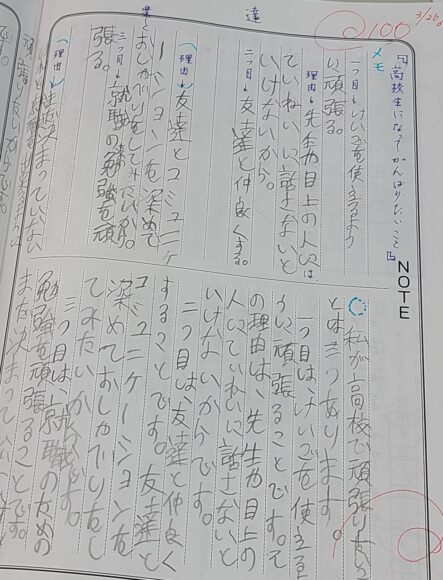 3/26
100
「高校生になってがんばりたいこと」
NOTE
メモ
一つ目→けいごを使えるよう
に頑張る。
理由→先生や目上の人には
ていねいに話さないと
いけないから。
二つ目→友達と仲良くする。
達
理由→友達とコミュニケ
ーションを深めて
おしゃべりをしてみたいから。
三つ目→就職の勉強を頑
張る。
理由→
私が高校で頑張りたいこ
とは三つあります。
一つ目は、けいごを使える
ように頑張ることです。そ
の理由は、先生や目上の
人にていねいに話さないと
いけないからです。
二つ目は、友達と仲良く
することです。友達と
コミュニケーションを
深めておしゃべりをし
てみたいからです。
三つ目は、就職のための
勉強を頑張ることです。
まだ決まってい